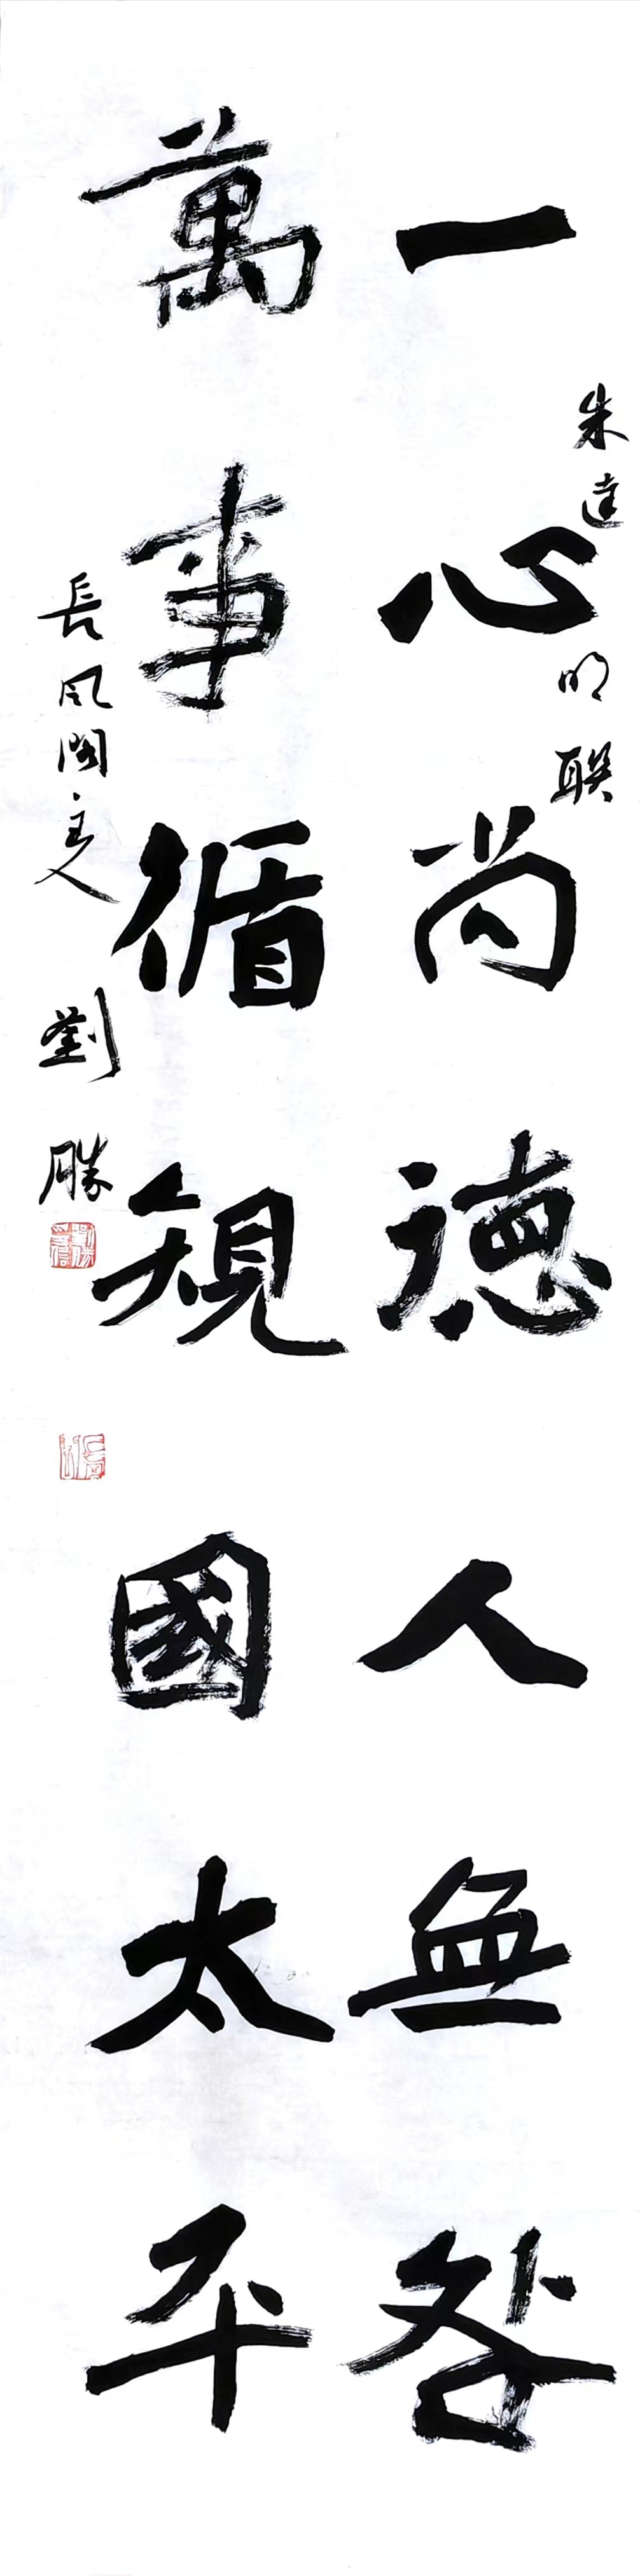 朱達明联
一心尚德人無咎
萬事循規國太平
長風閣主人劉勝